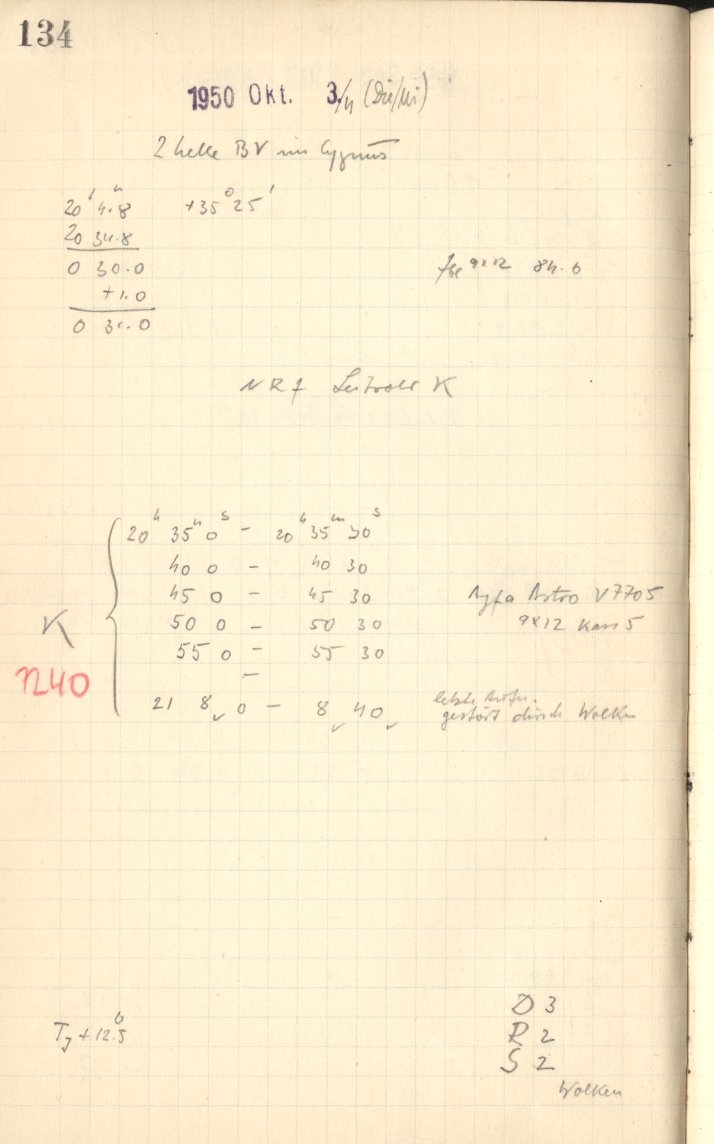 134
1950 Okt. 3./4 (Die/Mi)
2 helle BV im Cygnus
20 h 4.8 m +35° 25'
20 34.8
0 30.0
+1.0
0 31.0
9x12 84.0
NRF Leitrohr K
20 h 35 m 0 s - 20 h 35 m 30 s
40 0 - 40 30
45 0 - 45 30
50 0 - 50 30
55 0 - 55 30
-
21 8 0 - 8 40
K
n40
Agfa Astro V7705
9x12 Kass 5
letzte Aufn.
gestört durch Wolken
D 3
R 2
S 2
Wolken
TJ +12.5°